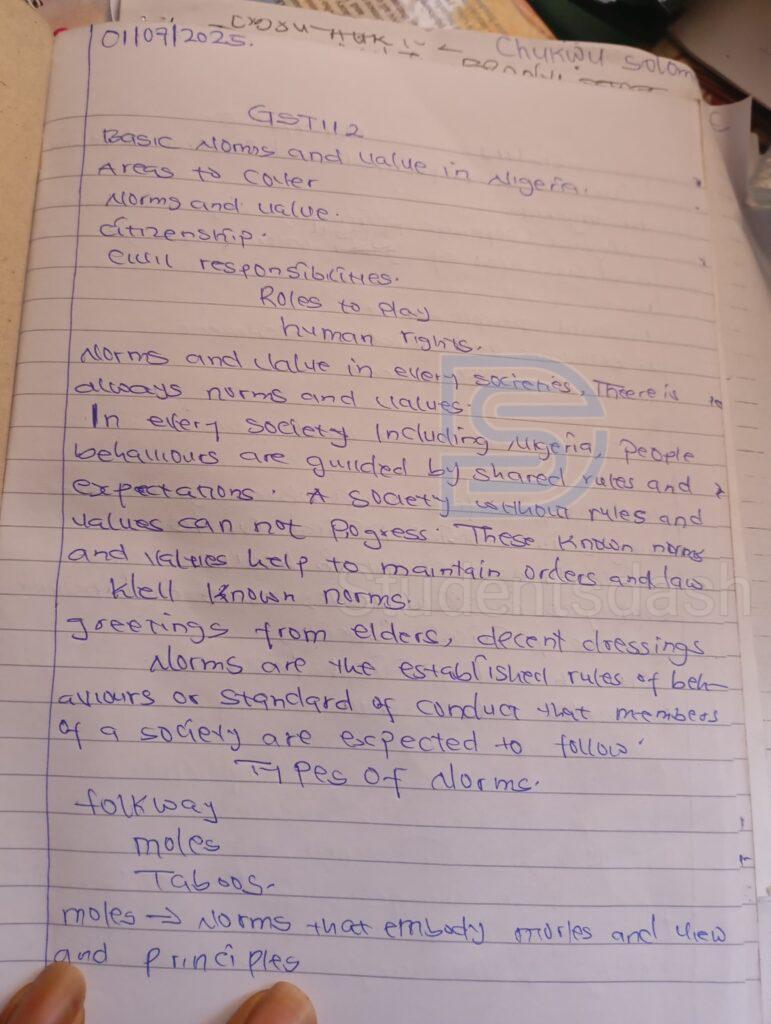 01/09/2025.
Chukwu Solom
GST112
Basic Norms and value in Nigeria.
Areas to cover
Norms and value.
citizenship.
civil responsibilities.
Roles to play
human rights.
Norms and value in every societies, There is
always norms and values.
In every society Including Nigeria, people
behaviours are guided by shared rules and
expectations. A society without rules and
values can not progress. These known norms
and values help to maintain orders and law
Well known norms.
greetings from elders, decent dressings
Norms are the established rules of beh-
aviours or standard of conduct that members
of a society are expected to follow.
Types of Norms.
folkway
moles
Taboos.
moles → Norms that embody morles and view
and principles
Studentsdash